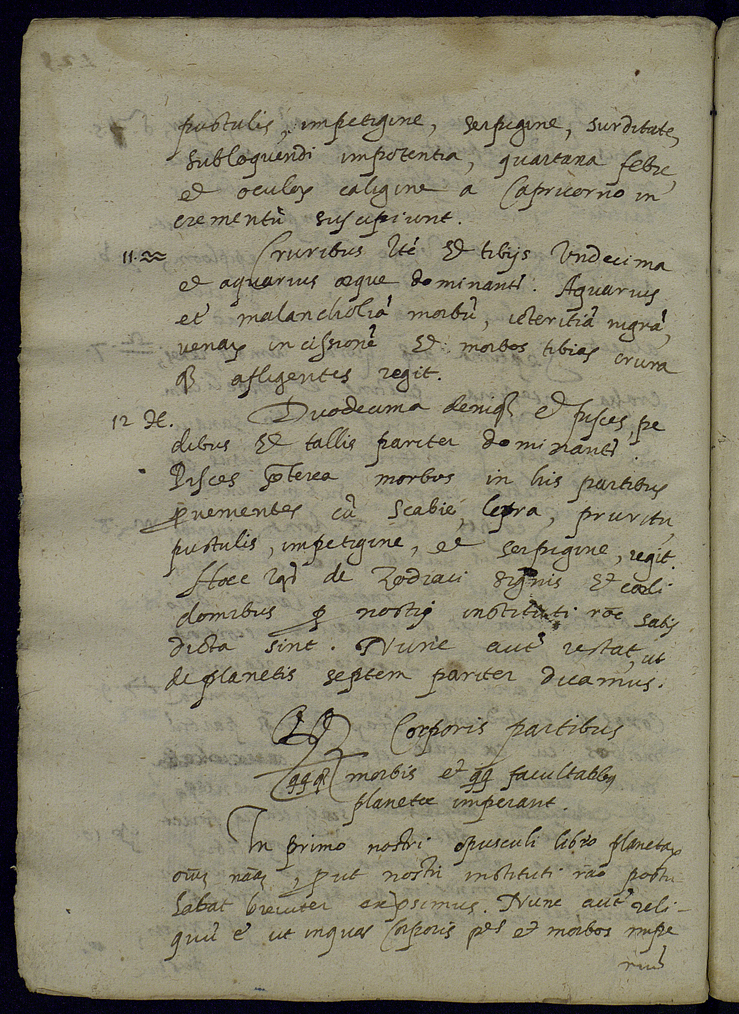 pustulis, impetigine, serpigine, surditate,
subloquendi impotentia, quartana febre,
et oculoꝝ caligine a Capricorno in
crementũ suscipiunt.
11. ♒ Cruribus Itẽ Et tibijs Vndecima
et aquarius æque dominant. Aquarius
et malancholiã morbũ, icteritiã nigrã,
venaꝝ incissionẽ Et morbos tibias crura
qꝫ afligentes regit.
12 ♓. Duodecima deniqꝫ et pisces, pe
dibus Et tallis pariter dominant.
Pisces ꝓterea morbos in his partibus
ꝓuenientes cũ scabie, lepra, pruritu,
pustulis, impetigine, et serpigine, regit.
Hæc de Zodiaci signis Et cœli
domibus ꝓ nostri instituti roẽ satis
dicta sint. Nunc autẽ restat, ut
de planetis septem pariter dicamus.
Corporis partibus
morbis et facultatibꝫ
planetæ imperant.
In primo nostri opusculi libro planetaꝝ
oĩus nãs, ꝓut nostri instituti rão postu
labat breuiter exposimus. Nunc autẽ reli-
quũ ẽ ut in quas Corporis ptes et morbos impe
riũ